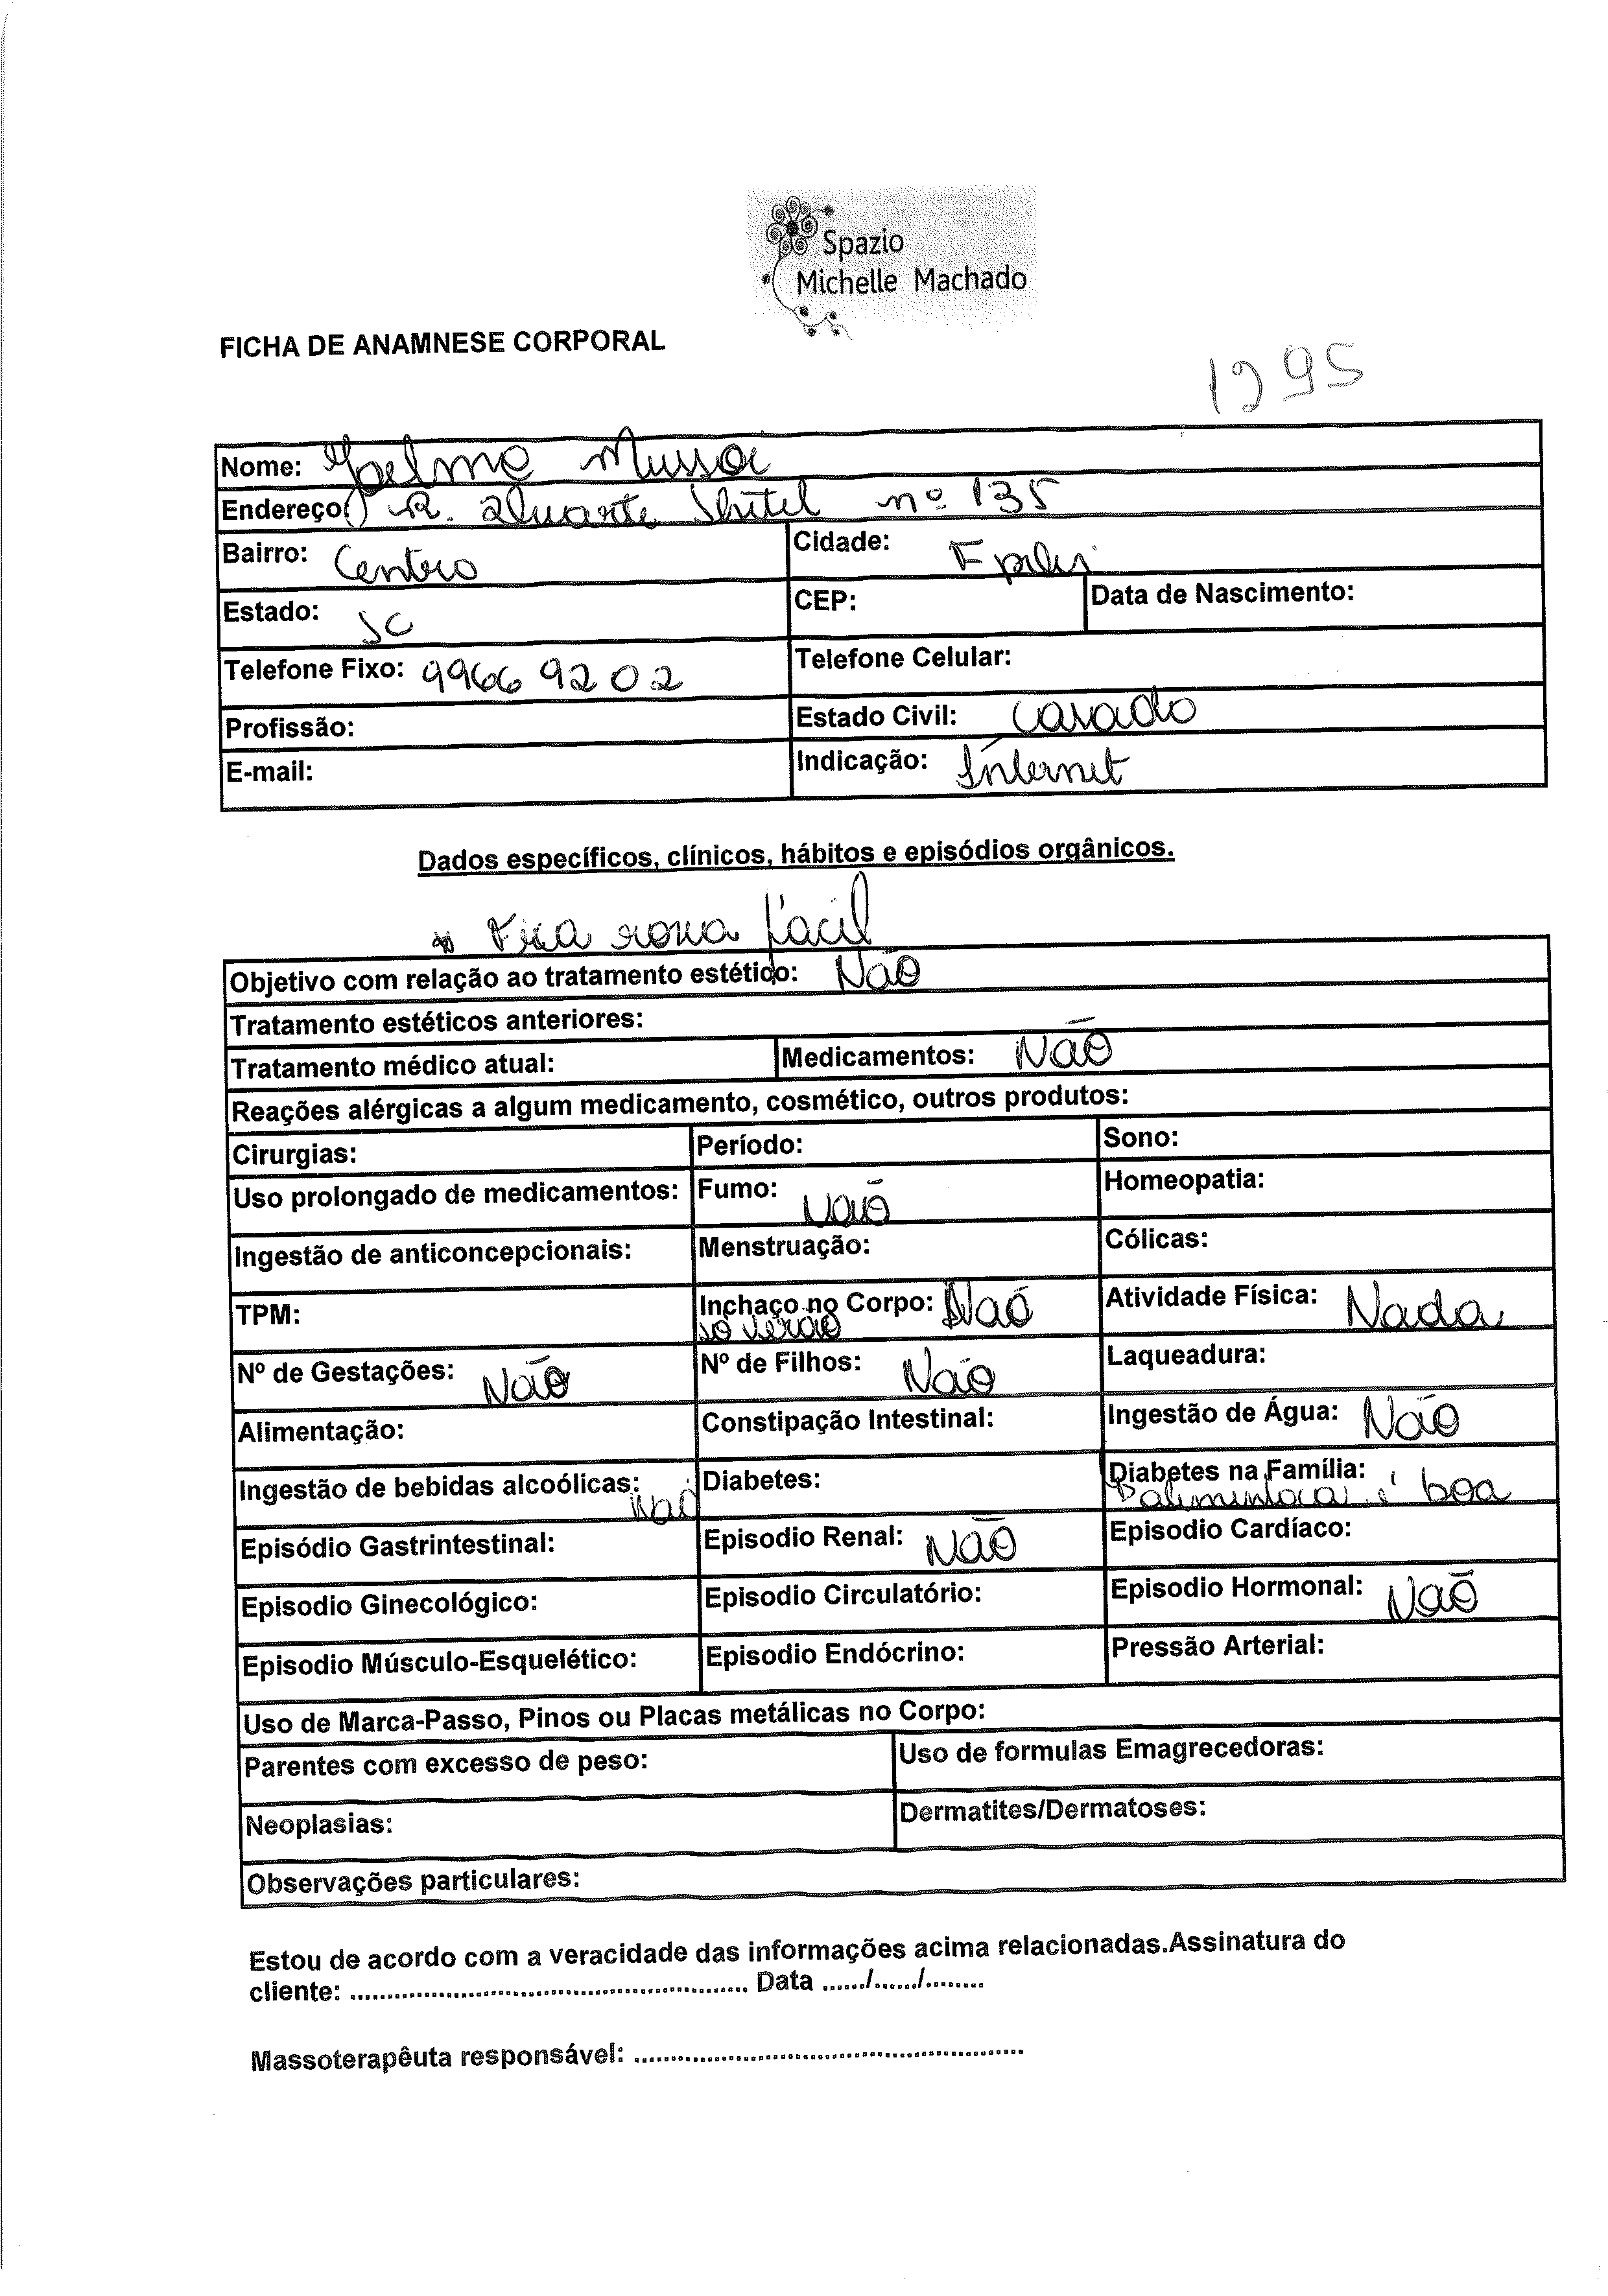 Spazio
Michelle Machado
FICHA DE ANAMNESE CORPORAL
1295
Nome: Joelma Mussoi
Endereço: R. nº 135
Bairro: Centro Cidade: Fpolis
Estado: SC CEP: Data de Nascimento:
Telefone Fixo: 99669202 Telefone Celular:
Profissão: Estado Civil: Casado
E-mail: Indicação: Internet
Dados específicos, clínicos, hábitos e episódios orgânicos.
* Fica roxa fácil
Objetivo com relação ao tratamento estético: Não
Tratamento estéticos anteriores:
Tratamento médico atual: Medicamentos: Não
Reações alérgicas a algum medicamento, cosmético, outros produtos:
Cirurgias: Período: Sono:
Uso prolongado de medicamentos: Fumo: Não Homeopatia:
Ingestão de anticoncepcionais: Menstruação: Cólicas:
TPM: Inchaço no Corpo: Não Atividade Física: Nada
só verão
Nº de Gestações: Não Nº de Filhos: Não Laqueadura:
Alimentação: Constipação Intestinal: Ingestão de Água: Não
Ingestão de bebidas alcoólicas: Não Diabetes: Diabetes na Família:
boa
Episódio Gastrintestinal: Episodio Renal: Não Episodio Cardíaco:
Episodio Ginecológico: Episodio Circulatório: Episodio Hormonal: Não
Episodio Músculo-Esquelético: Episodio Endócrino: Pressão Arterial:
Uso de Marca-Passo, Pinos ou Placas metálicas no Corpo:
Parentes com excesso de peso: Uso de formulas Emagrecedoras:
Neoplasias: Dermatites/Dermatoses:
Observações particulares:
Estou de acordo com a veracidade das informações acima relacionadas.Assinatura do
cliente: ...................................................... Data ....../....../........
Massoterapêuta responsável: .....................................................